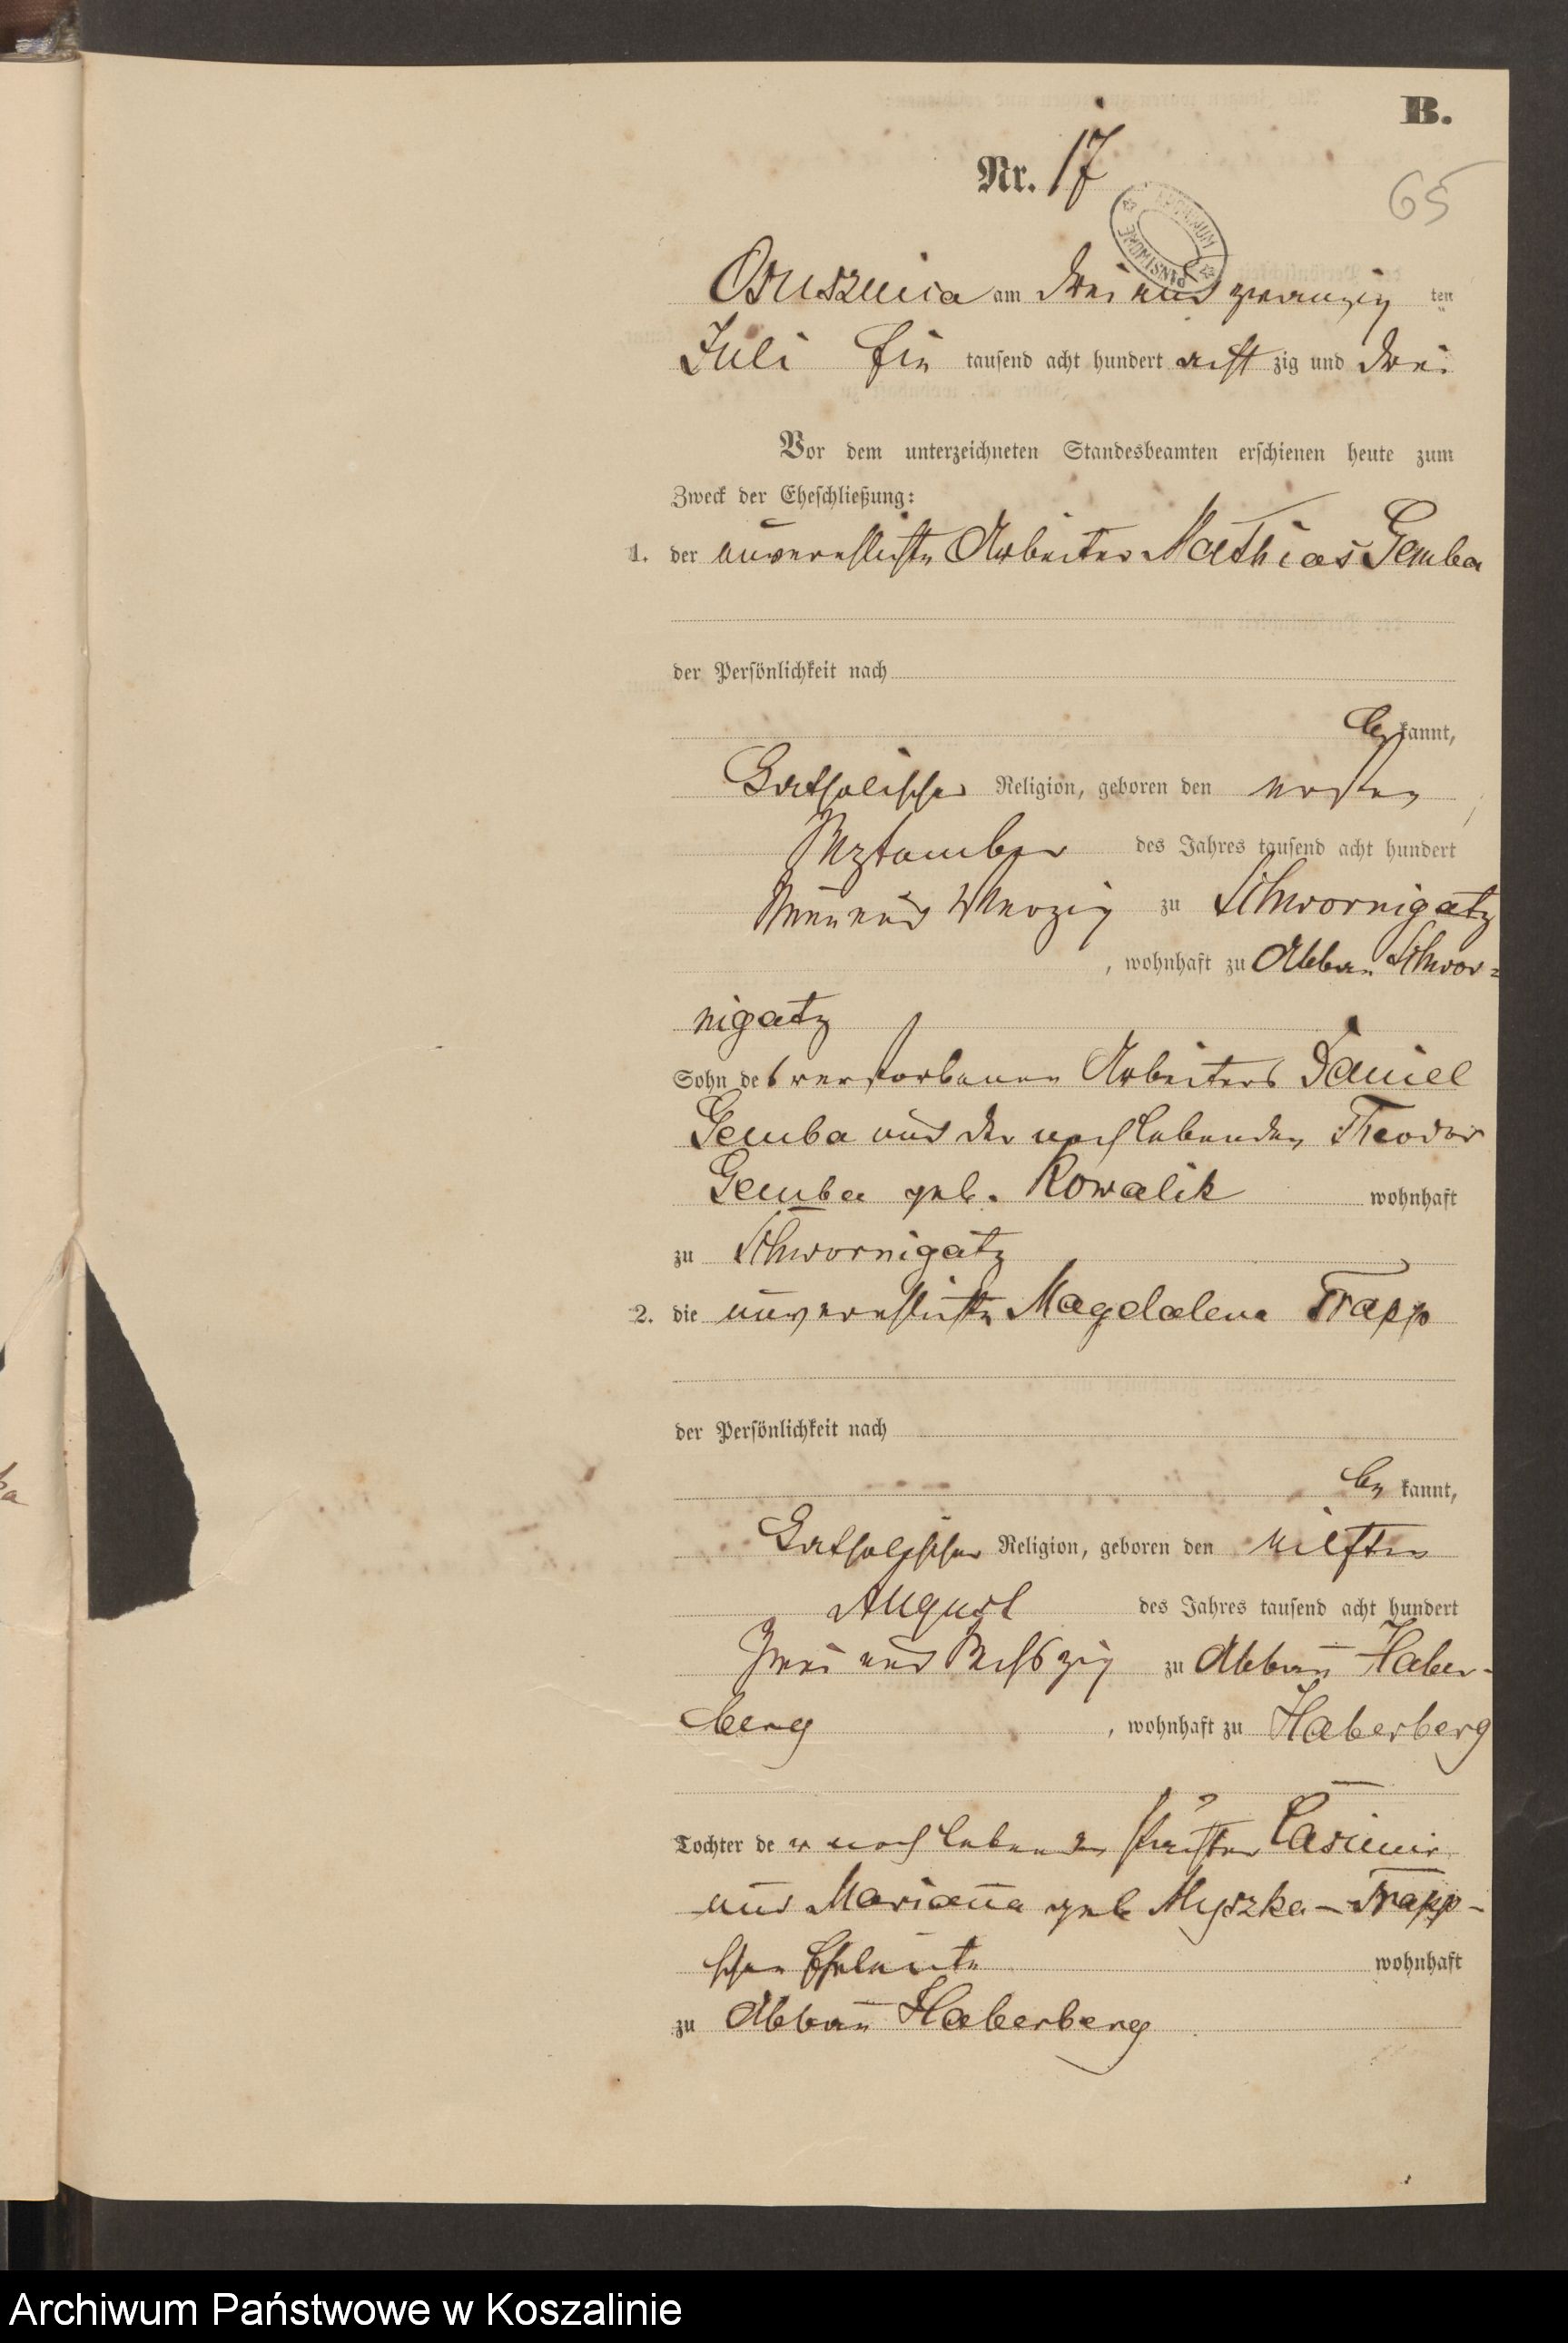 B.
Nr. 17
65
Osusznica am drei und zwanzig ten
Juli Ein tausend acht hundert acht zig und drei
Vor dem unterzeichneten Standesbeamten erschienen heute zum
Zweck der Eheschließung:
1. der unverehlichte Arbeiter Mathias Gemba
der Persönlichkeit nach
be kannt,
Catholischer Religion, geboren den ersten
September des Jahres tausend acht hundert
neun und vierzig zu Schwornigatz
, wohnhaft zu Abbau Schwor-
nigatz
Sohn des verstorbenen Arbeiters Daniel
Gemba und der noch lebenden Theodor
Gemba geb. Kowalik wohnhaft
zu Schwornigatz
2. die unverehlichte Magdalena Trapp
der Persönlichkeit nach
be kannt,
Catholischer Religion, geboren den eilften
August des Jahres tausend acht hundert
Zwei und Sechszig zu Abbau Haber-
berg , wohnhaft zu Haberberg
Tochter der noch lebenden Pächter Casimir
und Marianna geb Myszka - Trapp-
schen Eheleute wohnhaft
zu Abbau Haberberg
Archiwum Państwowe w Koszalinie